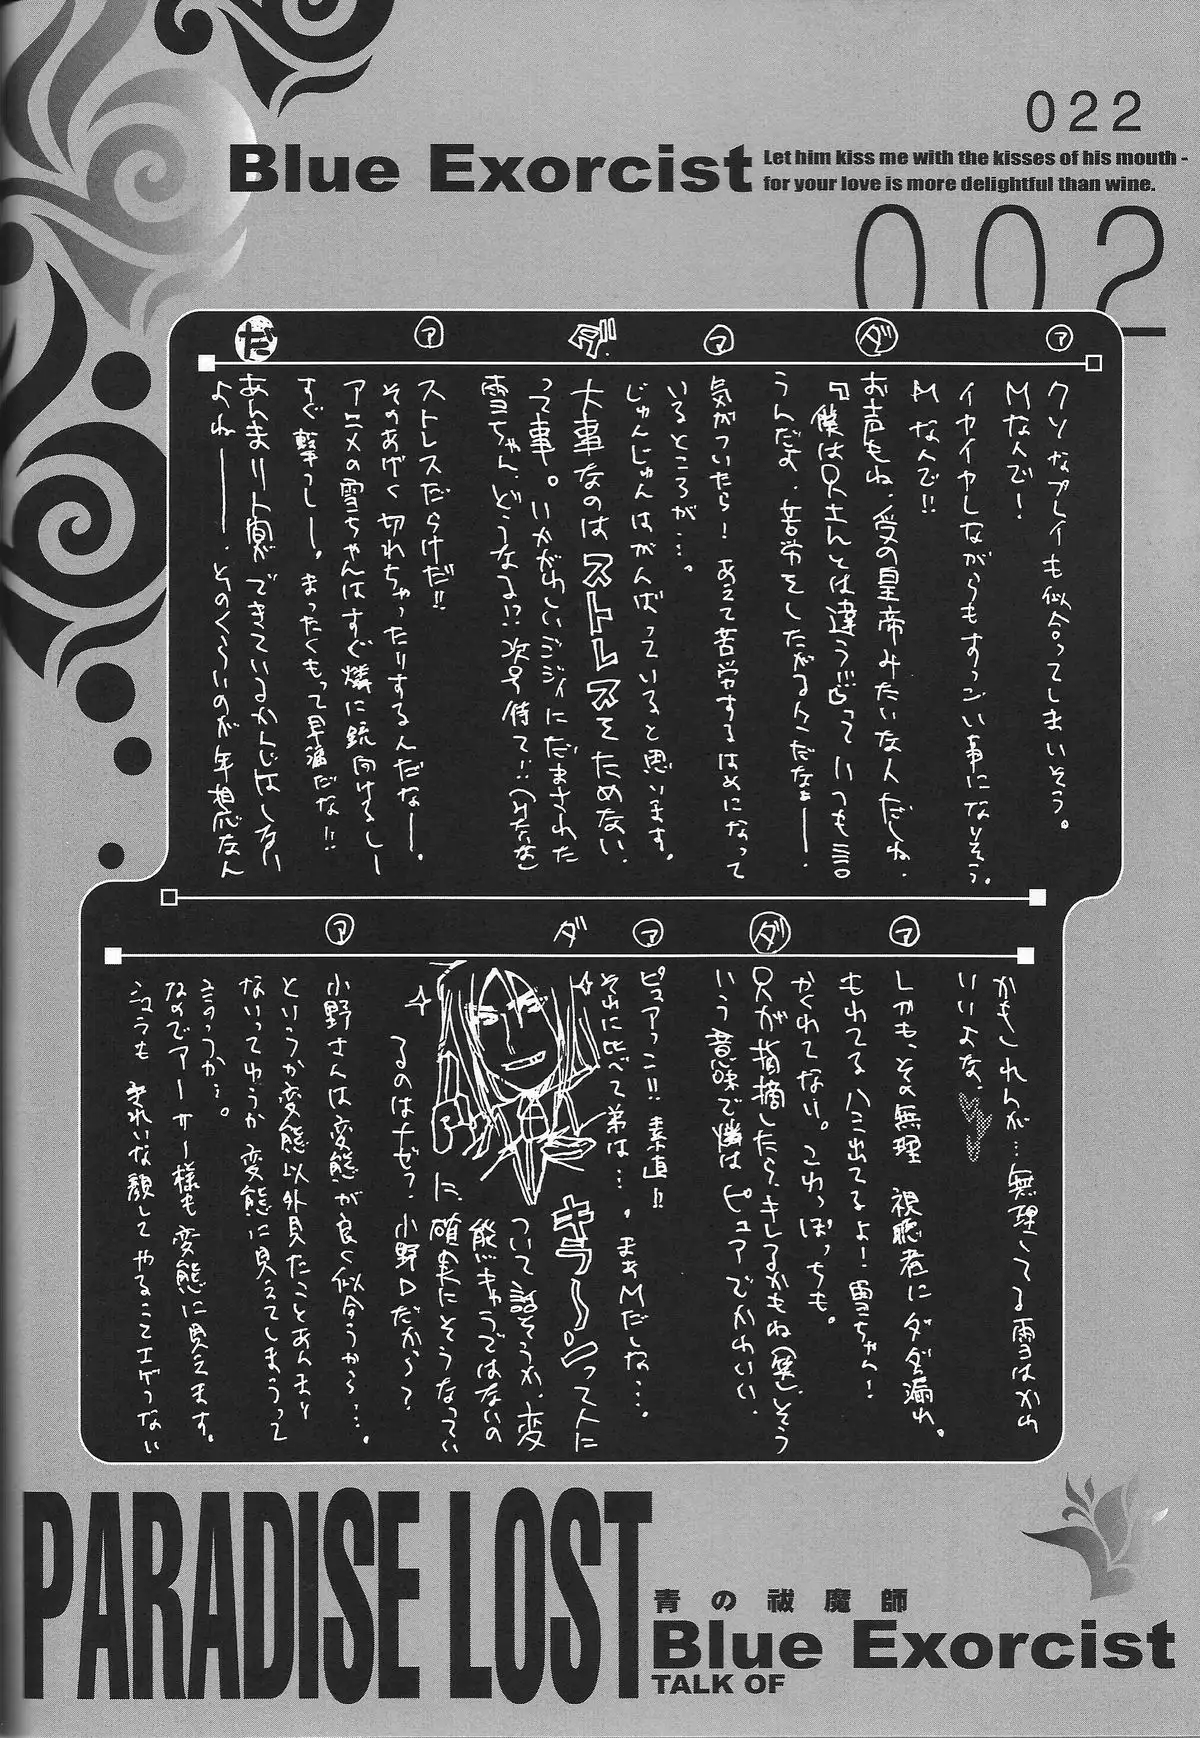 022
Blue Exorcist
Let him kiss me with the kisses of his mouth -
for your love is more delightful than wine.
002
ア
クソなプレイも似合ってしまいそう。
Mなんで!
イヤイヤしながらもすっごい事になりそう。
Mなんで!!
ダ
お声もね、受の皇帝みたいな人だしね、
『僕は兄さんとは違う!!』って いつも言
うんだよ、苦労をしたがるんこだなぁー、
ア
気がついたら! あえて苦労するはめになって
いるところが…。
じゅんじゅんはがんばっていると思います。
ダ
大事なのはストレスをためない、
って事。いかがわしいジジィにだまされた
雪ちゃん、どうなる!? 次号待て!!
ア
ストレスだらけだ!!
そのあげく切れちゃったりするんだなー。
アニメの雪ちゃんはすぐ燐に銃向けるしー
すぐ撃つしー。まったくもって早漏だな!!
だ
あんまり人間ができているかんじはしない
よねー——、そのくらいのが年相応なん
かもしれんが…無理してる雪はかわ
いいよな、
ア
しかも、その無理 視聴者にダダ漏れ。
もれてる ハミ出てるよ! 雪ちゃん!
かくれてない。これっぽっちも。
ダ
兄が指摘したら、キレるかもね(笑)そう
いう意味で燐はピュアでかわいい、
ア
ピュアっこ!! 素直!!
それに比べて弟は…。まぁMだしな…。
ダ
キラーンって人に
ついて話そうか、変
態キャラではないの
に、確実にそうなってい
るのはナゼ?、小野Dだから?
ア
小野さんは変態が良く似合うから…。
というか変態以外見たことあんまり
ないってゆうか変態に見えてしまうって
ゆうか…。
なのでアーサー様も変態に見えます。
シュラも きれいな顔してやることエゲつない
PARADISE LOST
青の祓魔師
Blue Exorcist
TALK OF